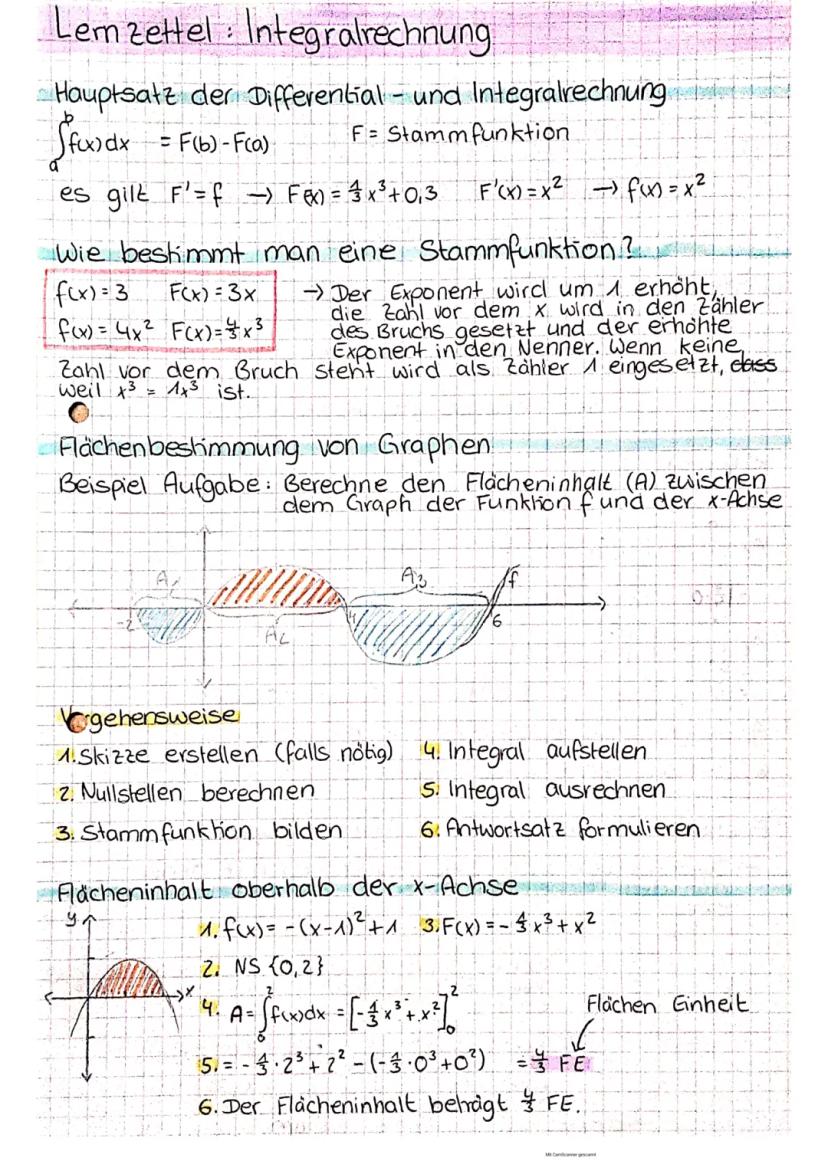 Lernzettel: Integralrechnung
Hauptsatz der Differential- und Integralrechnung
∫ₐᵇ f(x)dx = F(b)-F(a)   F = Stammfunktion
es gilt F'=f → F(x) = 1/3 x³+0,3   F'(x) = x² → f(x) = x²
Wie bestimmt man eine Stammfunktion?
f(x) = 3   F(x) = 3x
f(x) = 4x²   F(x) = 4/3 x³
→ Der Exponent wird um 1 erhöht,
die Zahl vor dem x wird in den Zähler
des Bruchs gesetzt und der erhöhte
Exponent in den Nenner. Wenn keine
Zahl vor dem Bruch steht wird als Zähler 1 eingesetzt, dass
weil x³ = 1x³ ist.
Flächenbestimmung von Graphen
Beispiel Aufgabe: Berechne den Flächeninhalt (A) zwischen
dem Graph der Funktion f und der x-Achse
A₁   A₃   f
-2   A₂   4   6
Vorgehensweise
1. Skizze erstellen (falls nötig)   4. Integral aufstellen
2. Nullstellen berechnen   5. Integral ausrechnen
3. Stammfunktion bilden   6. Antwortsatz formulieren
Flächeninhalt oberhalb der x-Achse
y
x
1. f(x) = -(x-1)²+1   3. F(x) = -1/3 x³ + x²
2. NS {0,2}
4. A = ∫₀² f(x)dx = [-1/3 x³ + x²]₀²   Flächen Einheit
5. = -1/3 · 2³ + 2² - (-1/3 · 0³ + 0²) = 4/3 FE
6. Der Flächeninhalt beträgt 4/3 FE.
Mit CamScanner gescannt